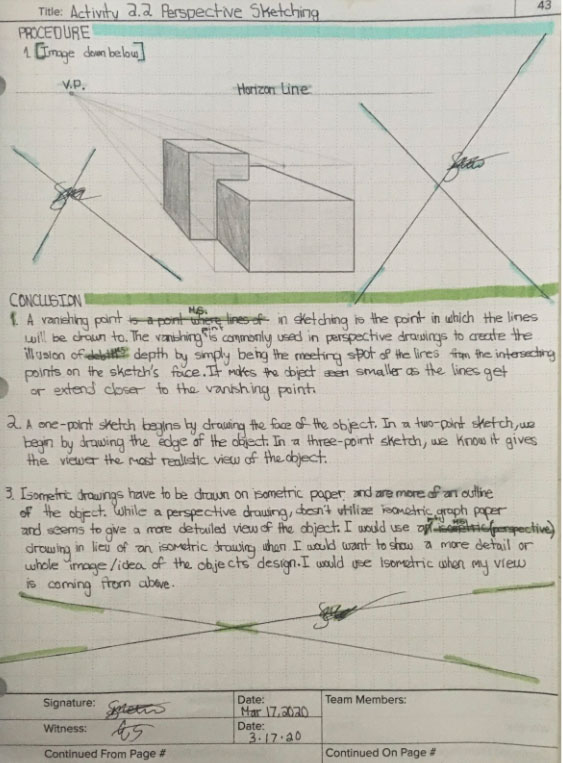 Title: Activity 2.2 Perspective Sketching
43
PROCEDURE
1. [Image down below]
V.P.
Horizon Line
CONCLUSION
1. A vanishing point is a point where lines of in sketching is the point in which the lines
will be drawn to. The vanishing point is commonly used in perspective drawings to create the
illusion of depth by simply being the meeting spot of the lines from the intersecting
points on the sketch's face. It makes the object seen smaller as the lines get
or extend closer to the vanishing point.
2. A one-point sketch begins by drawing the face of the object. In a two-point sketch, we
begin by drawing the edge of the object. In a three-point sketch, we know it gives
the viewer the most realistic view of the object.
3. Isometric drawings have to be drawn on isometric paper, and are more of an outline
of the object. While a perspective drawing, doesn't utilize isometric graph paper
and seems to give a more detailed view of the object. I would use (perspective)
drawing in lieu of an isometric drawing when I would want to show a more detail or
whole image/idea of the objects' design. I would use Isometric when my view
is coming from above.
Signature:
Date:
Mar 17, 2020
Team Members:
Witness:
Date:
3.17.20
Continued From Page #
Continued On Page #